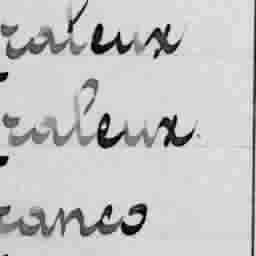 raleux
raleux
ranco